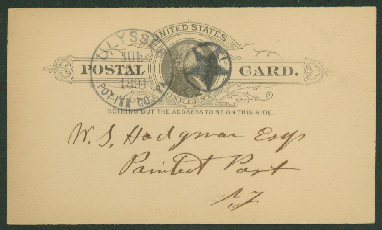 UNITED STATES
POSTAL CARD.
ULYSSES
JUL
1891
POTTER CO., PA
NOTHING BUT THE ADDRESS TO BE ON THIS SIDE.
W. S. Hodgman Esq
Painted Post
N.Y.